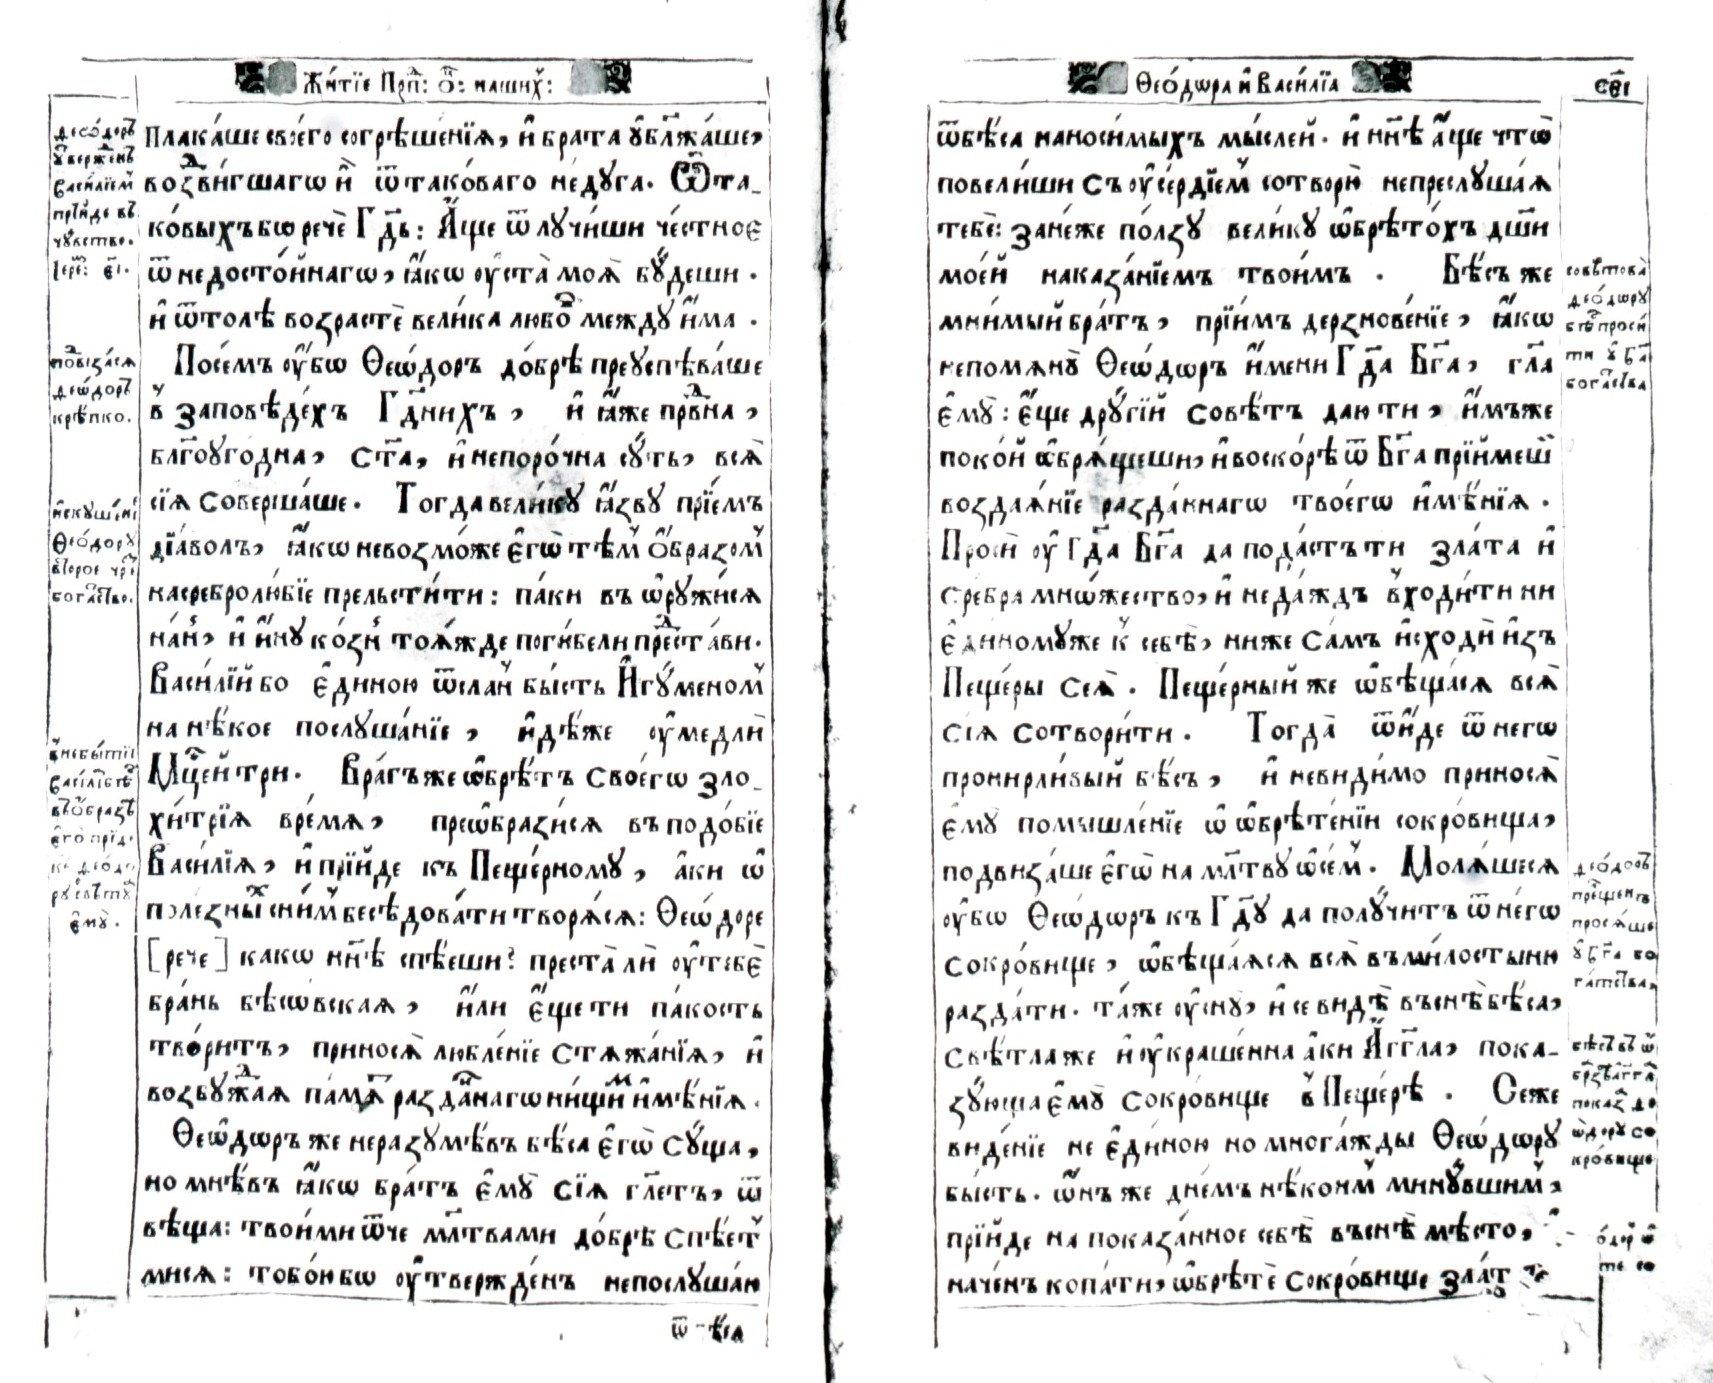 Жи́тїе Прп҃: ѻ҃: нашиⷯ:
плака́ше своего̀ согрѣше́нїѧ, и҆ бра́та ᲂу҆блжа́ше,
воздви́гшагѡ и҆̀ ѿ тако́вагѡ неду́га. Ѿ та_
ко́выхъ бѡ речѐ Гд҃ь: А҆́ще ѿлꙋчи́ши че́стное
ѿ недосто́йнагѡ, ꙗ҆́кѡ ᲂу҆ста̀ моѧ̀ бꙋ́деши.
и҆ ѿто́лѣ возрастѐ вели́ка любо́вь междꙋ̀ и҆́ма.
Посе́мъ ᲂу҆́бѡ Ѳеѡ́доръ до́брѣ преꙋспѣва́ше
в̾ за́повѣдехъ Гд҃нихъ, и҆ ꙗ҆̀же пра́ведна,
блг҃оꙋго́дна, ст҃а, и҆ непоро́чна сꙋ́ть, всѧ̀
сїѧ̀ соверша́ше. Тогда̀ вели́кꙋ ꙗ҆́звꙋ прїе́мъ
дїа́волъ, ꙗ҆́кѡ невозмо́же є҆го̀ тѣ́мъ ѻ҆́бразомъ
на сребролю́бїе прельсти́ти: па́ки въѡ҆рꙋжи́сѧ
на́нь, и҆ и҆́нꙋ ко́знь тоѧ́жде поги́бели предста́ви.
Васи́лїй бо є҆ди́ною ѿсла́нъ бы́сть И҆гꙋ́меномъ
на нѣ́кое послꙋша́нїе, и҆дѣ́же ᲂу҆ме́дли
Мцⷭ҇ей трѝ. Вра́гъ же ѡ҆брѣ́тъ своегѡ̀ зло_
хи́трїѧ вре́мѧ, преѡбрази́сѧ въ подо́бїе
Васи́лїѧ, и҆ прїи́де къ Пеще́рномꙋ, а҆́ки ѡ҆
поле́зныхъ сни́мъ бесѣ́довати творѧ́сѧ: Ѳеѡ́доре
[рече] ка́кѡ нн҃ѣ спѣ́еши? преста̀ лѝ ᲂу҆ тебѐ
бра́нь бѣсѡ́вскаѧ, и҆лѝ є҆ще́ ти па́кость
твори́тъ, приносѧ̀ любле́нїе стѧжа́нїѧ, и҆
возбꙋжда́ѧ па́мѧть разда́ннагѡ ни́щымъ и҆мѣ́нїѧ.
Ѳеѡ́дѡръ же неразꙋмѣ́въ бѣ́са є҆го̀ сꙋ́ща,
но мнѣ́въ ꙗ҆́кѡ бра́тъ є҆мꙋ̀ сїѧ̀ гл҃етъ, ѿ
вѣща: твои́ми ѿче мл҃твами до́брѣ спѣ́етъ
мисѧ: тобо́и бѡ ᲂу҆твержде́нъ непослꙋша́ю
ѿ
Ѳео́дѡръ
ᲂу҆верже́нъ
Васи́лїемъ
прїи́де въ
чꙋ́вство.
І҆ере: є҃і.
подвиза́сѧ
Ѳеѡ́доръ
крѣ́пко.
и҆скꙋше́нїе
Ѳео́дорꙋ
второ́е чрⷭ҇
бога́ство.
в̾ небы́тїи
Васи́лїѧ бѣ́съ
въ ѻ҆́бразѣ
є҆гѡ̀ прїи́д.
къ Ѳео́до_
рꙋ совѣ́тꙋѧ
є҆мꙋ̀.
Ѳео́дѡра и҆ Васи́лїѧ
сві
ѿ бѣ́са наноси́мыхъ мы́слей. и҆ нн҃ѣ а҆́ще что̀
повели́ши съ ᲂу҆се́рдїемъ сотворю̀ непреслꙋша́ѧ
тебѐ: зане́же по́лзꙋ вели́кꙋ ѡ҆брѣто́хъ дш҃и
мое́й наказа́нїемъ твои́мъ. Бѣ́съ же
мни́мый бра́тъ, прїи́мъ дерзнове́нїе, ꙗ҆́кѡ
непомѧнꙋ̀ Ѳеѡ́дѡръ и҆́мени Гд҃а Бг҃а, гл҃а
є҆мꙋ̀: є҆́ще дрꙋгі́й совѣ́тъ даю̀ ти, и҆́мъже
поко́й ѡ҆брѧ́щеши, и҆ воско́рѣ ѿ Бг҃а прїи́меши
воздаѧ́нїе разда́ннагѡ твоегѡ̀ и҆мѣ́нїѧ.
Просѝ ᲂу҆ Гд҃а Бг҃а да пода́стъ ти зла́та и҆
сребра мнѡ́жество, и҆ не да́ждь в̾ходи́ти ни
є҆ди́номꙋже к̾ себѣ̀, ниже са́мъ и҆сходѝ и҆з̾
Пеще́ры сеѧ̀. Пеще́рный же ѡ҆бѣща́сѧ всѧ̀
сїѧ сотвори́ти. Тогда̀ ѿи́де ѿ негѡ̀
пронирли́вый бѣ́съ, и҆ неви́димо приносѧ̀
є҆мꙋ̀ помышле́нїе ѡ҆ ѡ҆брѣте́нїи сокро́вища,
подвиза́ше є҆го̀ на мл҃твꙋ ѡ҆ се́мъ. Молѧ́шесѧ
ᲂу҆́бѡ Ѳеѡ́дѡръ къ Гд҃ꙋ да полꙋ́читъ ѿ негѡ̀
сокро́вище, ѡ҆бѣща́ѧсѧ всѧ̀ въ ми́лостыню
разда́ти. та́же ᲂу҆снꙋ̀, и҆ се ви́дѣ въ снѣ̀ бѣ́са,
свѣ́тла же и҆ ᲂу҆краше́нна а҆́ки А҆́гг҃ла, пока_
зꙋ́юща є҆мꙋ̀ сокро́вище в̾ Пеще́рѣ. Се́же
виде́нїе не є҆ди́ною но мно́гажды Ѳеѡ́дѡрꙋ
бы́сть. ѡ҆́нъ же дне́мъ нѣ́коимъ минꙋ́вшимъ,
прїи́де на пока́занное себѣ̀ въ снѣ̀ мѣ́сто,
наче́нъ копа́ти, ѡ҆брѣ́те сокро́вище зла́т
совѣ́това
Ѳео́дѡрꙋ
бѣ́съ проси́_
ти ᲂу҆ Бг҃а
бога́ства
Ѳео́доръ
преще́нъ
просѧ́ше
ᲂу҆ Бг҃а бо
га́тства,
бѣ́съ въ ѻ҆́
бразѣ а҆́гг҃ла
показа̀ Ѳе
ѡ́дорꙋ со
кро́вище